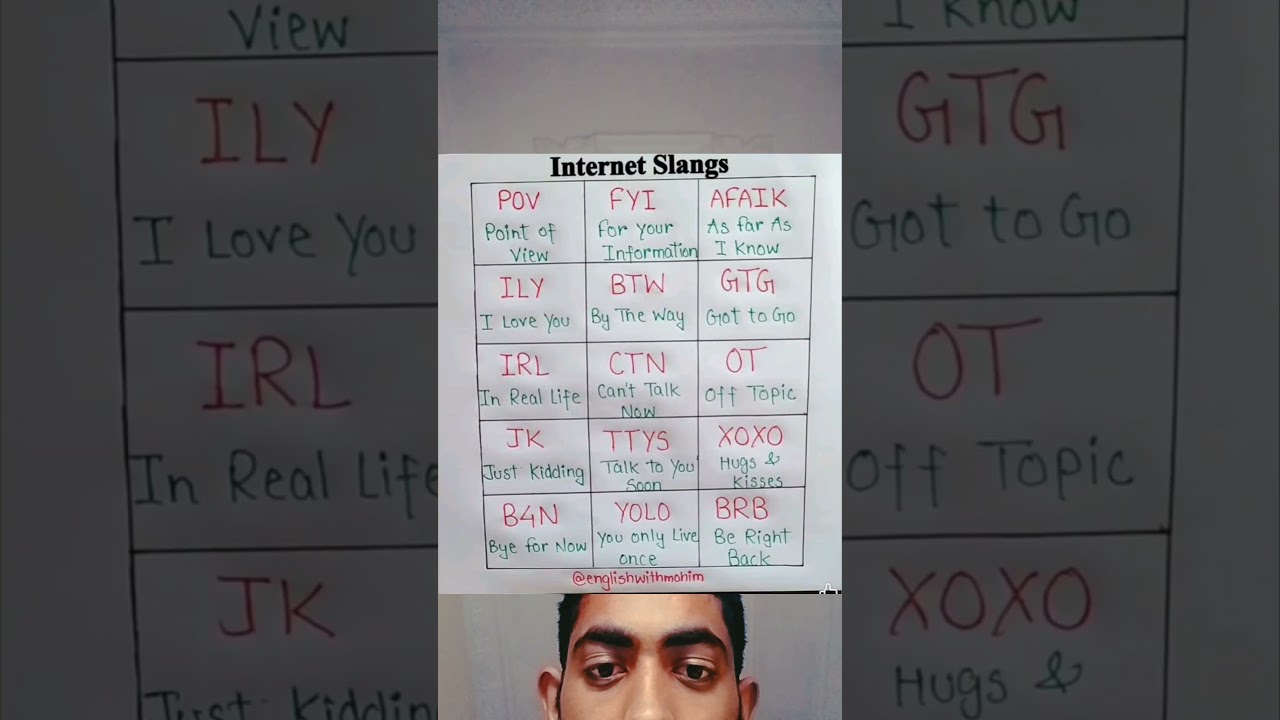 Internet Slangs
POV
Point of
View
FYI
for your
Information
AFAIK
As far As
I Know
ILY
I Love You
BTW
By The Way
GTG
Got to Go
IRL
In Real Life
CTN
Can't Talk
Now
OT
Off Topic
JK
Just Kidding
TTYS
Talk to You
Soon
XOXO
Hugs &
Kisses
B4N
Bye for Now
YOLO
You only Live
once
BRB
Be Right
Back
@englishwithmohim
View
ILY
I Love You
IRL
In Real Life
JK
Just Kidding
I Know
GTG
Got to Go
OT
Off Topic
XOXO
Hugs &